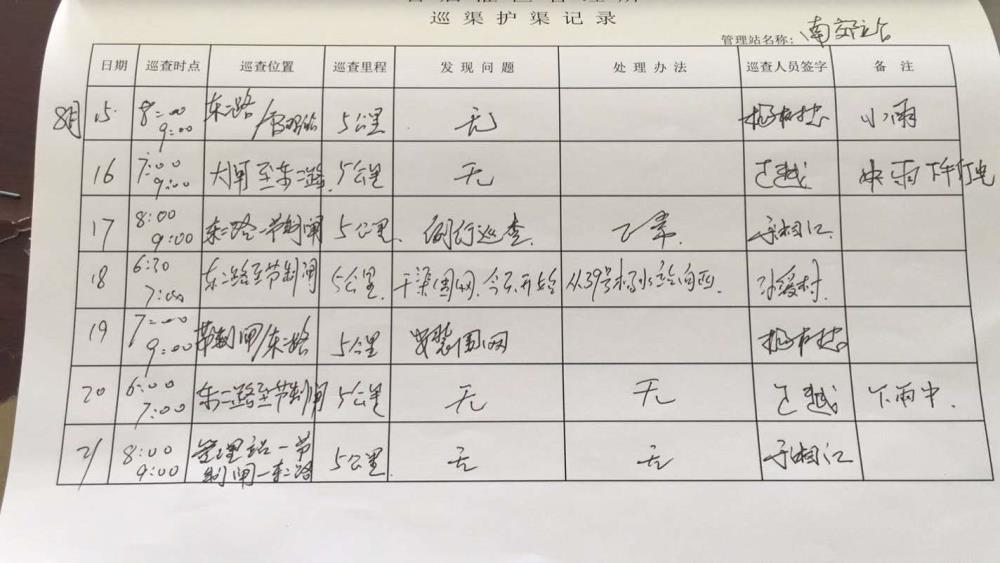 巡渠护渠记录
管理站名称: 南郊站
日期 巡查时点 巡查位置 巡查里程 发现问题 处理办法 巡查人员签字 备注
8月 15 8:00 9:00 东二路/管理站 5公里 无 小雨
16 7:00 9:00 大闸至东二路 5公里 无 王越 中雨
17 8:00 9:00 东二路一节制闸 5公里 例行巡查 正常 于湘江
18 6:30 7:00 东二路至节制闸 5公里 干渠围网,今天开始 从39号 向西
19 7:00 9:00 节制闸/东二路 5公里 安装围网
20 6:00 7:00 东二路至节制闸 5公里 无 无 王越 下雨中
21 8:00 9:00 管理站一节制闸一东二路 5公里 无 无 于湘江